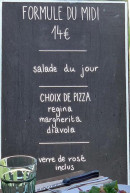 FORMULE DU MIDI
14€
salade du jour
CHOIX DE PIZZA
regina
margherita
diavola
verre de rosé
inclus